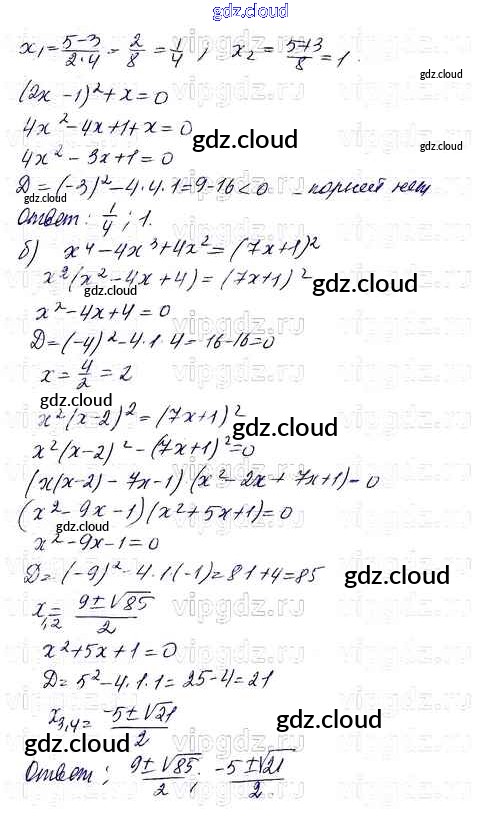 gdz.cloud
x₁ = (5-3)/(2·4) = 2/8 = 1/4 ; x₂ = (5+3)/8 = 1.
gdz.cloud
(2x - 1)² + x = 0
4x² - 4x + 1 + x = 0
gdz.cloud
gdz.cloud
4x² - 3x + 1 = 0
Д = (-3)² - 4·4·1 = 9 - 16 < 0 - корней нет
gdz.cloud
Ответ: 1/4 ; 1.
б) x⁴ - 4x³ + 4x² = (7x+1)²
x²(x² - 4x + 4) = (7x+1)²
gdz.cloud
gdz.cloud
x² - 4x + 4 = 0
Д = (-4)² - 4·1·4 = 16 - 16 = 0
gdz.cloud
x = 4/2 = 2
x²(x-2)² = (7x+1)²
gdz.cloud
gdz.cloud
x²(x-2)² - (7x+1)² = 0
(x(x-2) - 7x - 1)(x² - 2x + 7x + 1) = 0
(x² - 9x - 1)(x² + 5x + 1) = 0
gdz.cloud
x² - 9x - 1 = 0
Д = (-9)² - 4·1·(-1) = 81 + 4 = 85
gdz.cloud
x₁,₂ = (9 ± √85)/2
gdz.cloud
x² + 5x + 1 = 0
Д = 5² - 4·1·1 = 25 - 4 = 21
x₃,₄ = (-5 ± √21)/2
gdz.cloud
gdz.cloud
Ответ: (9 ± √85)/2 ; (-5 ± √21)/2.
gdz.cloud
gdz.cloud